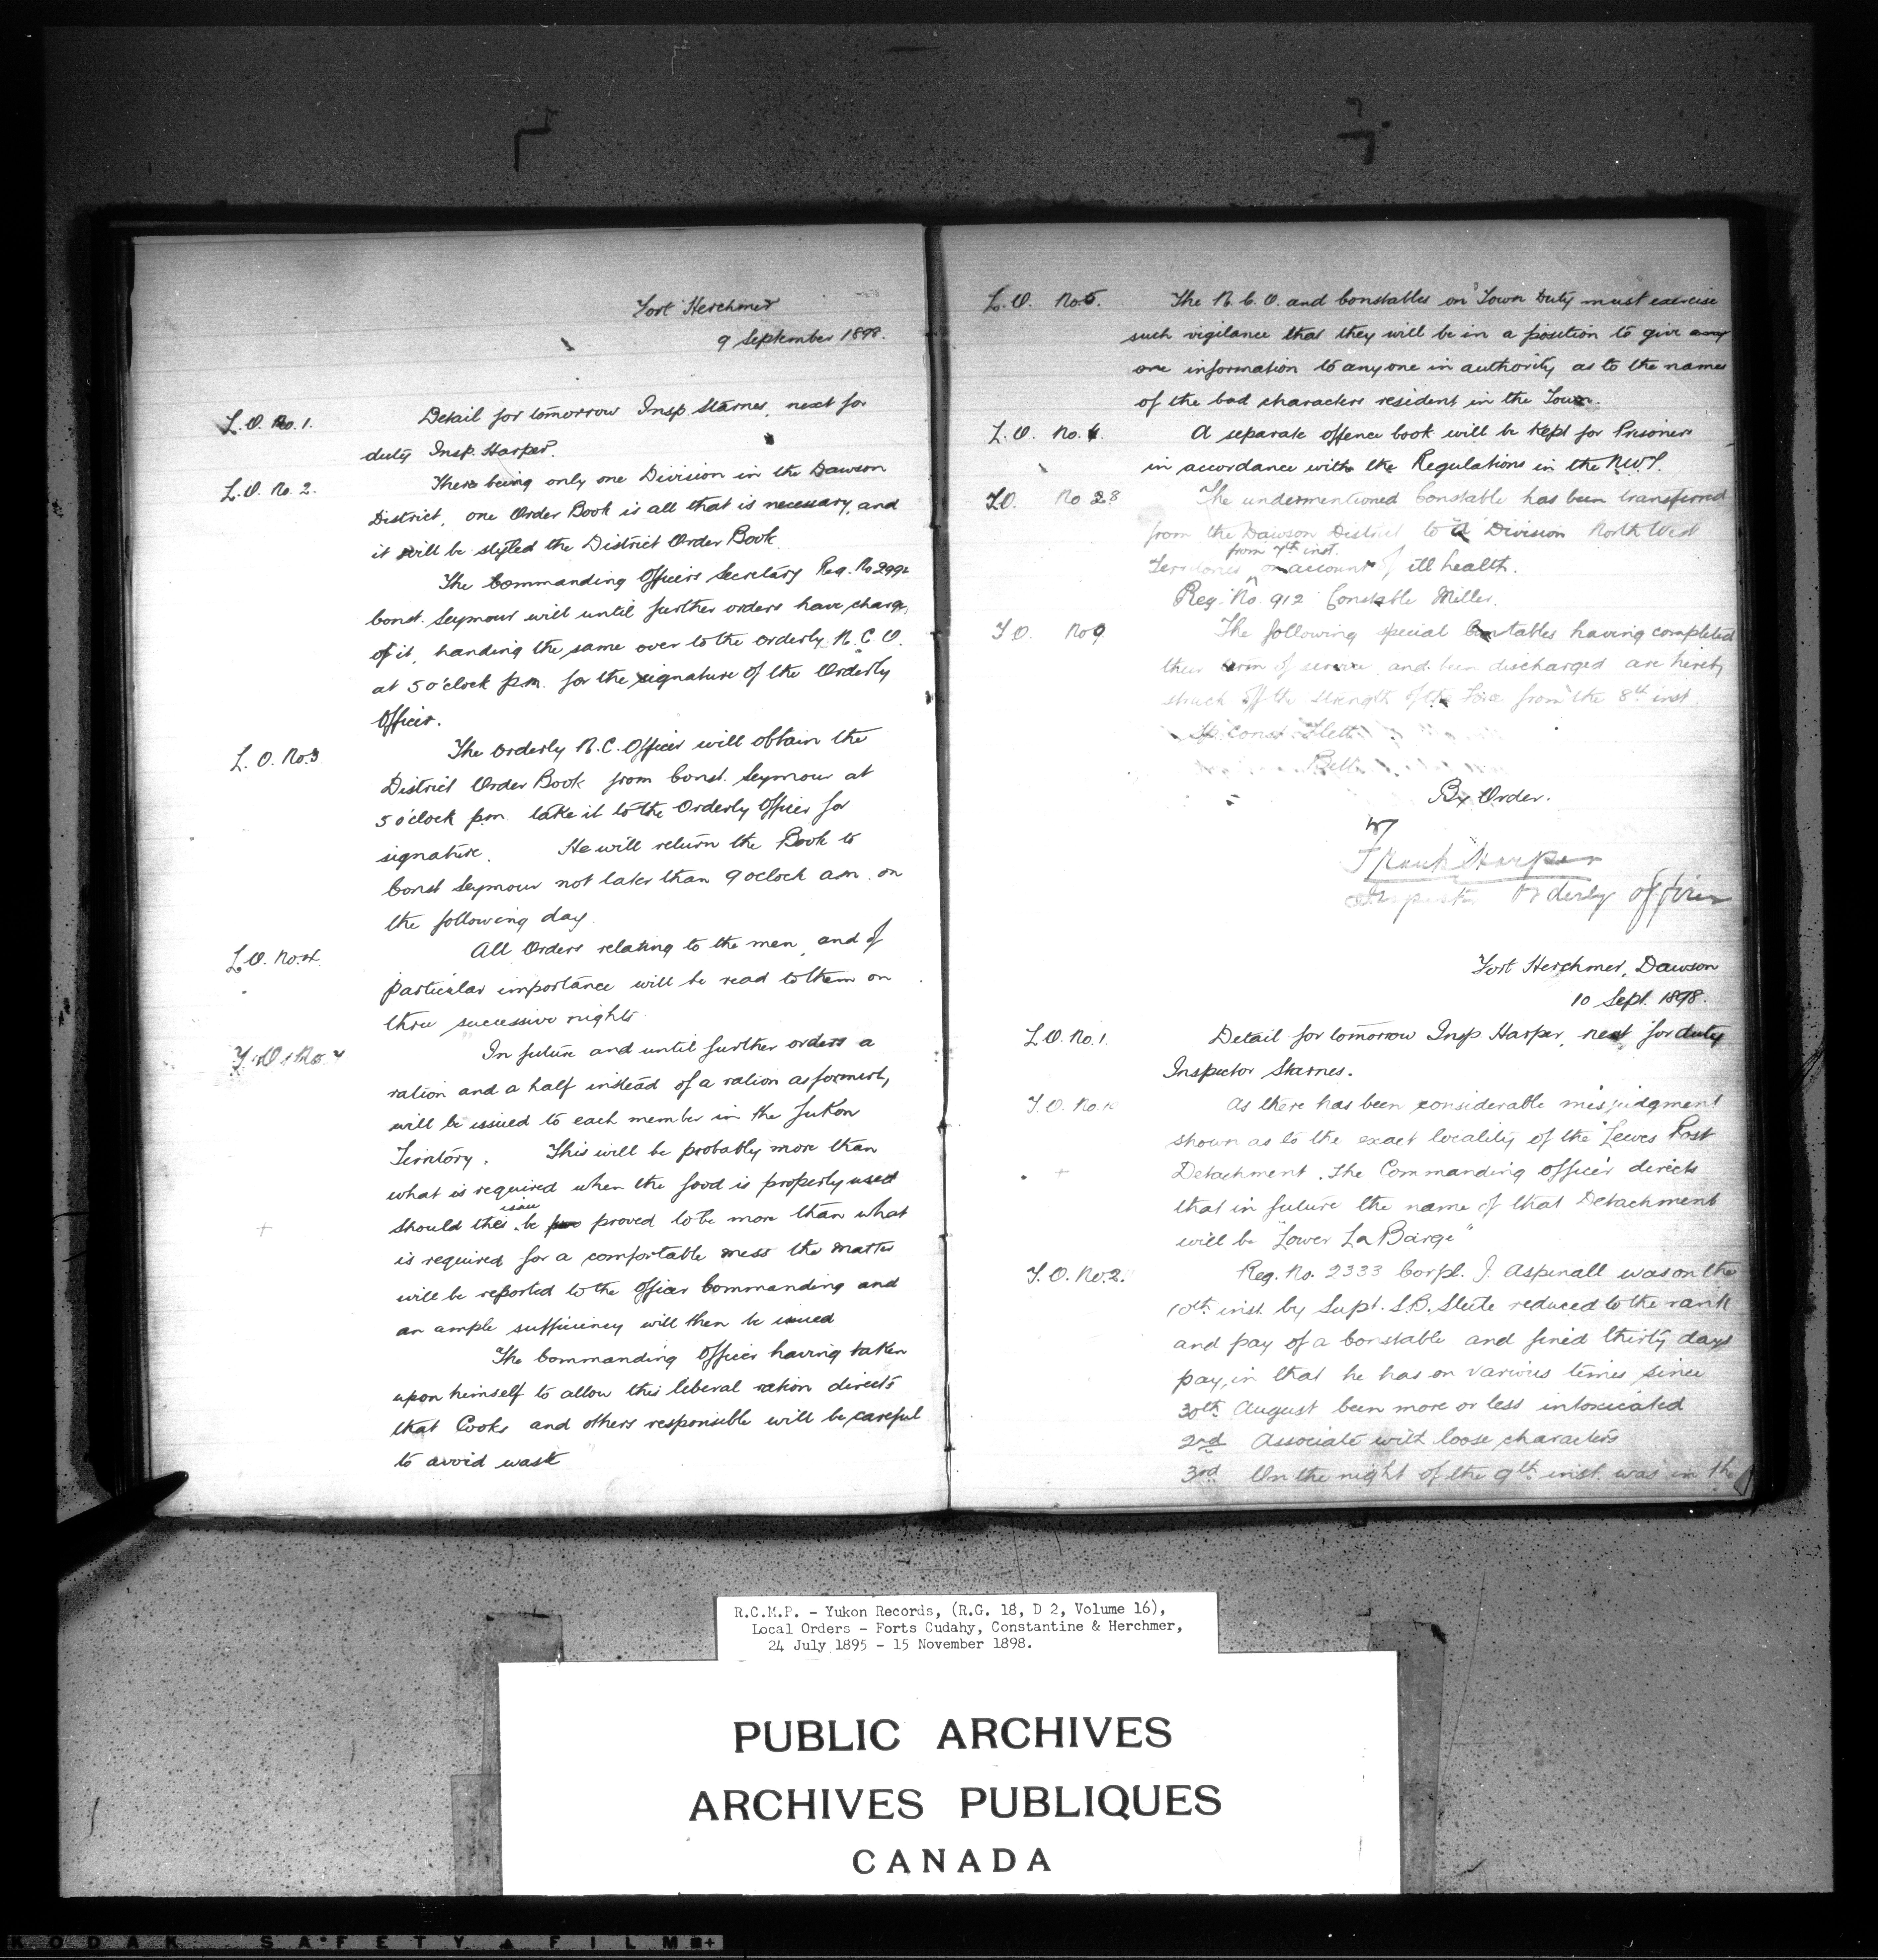 Fort Herchmer
9 September 1898.
L. O. No. 1. Detail for tomorrow Insp. Starnes, next for
duty Insp. Harper.
L. O. No. 2. There being only one Division in the Dawson
District, one Order Book is all that is necessary, and
it will be styled the District Order Book.
The Commanding Officers Secretary Reg. No 299
Const. Seymour will until further orders have charge,
of it, handing the same over to the Orderly N. C. O.
at 5 o'clock p.m. for the signature of the Orderly
Officer.
L. O. No. 3 The Orderly N. C. Officer will obtain the
District Order Book from Const. Seymour at
5 o'clock p.m. take it to the Orderly Officer for
signature. He will return the Book to
Const Seymour not later than 9 oclock a.m. on
the following day.
L. O. No. 4. All Orders relating to the men, and of
particular importance will be read to them on
three successive nights.
No. 7 In future and until further orders a
ration and a half instead of a ration as formerly,
will be issued to each member in the Yukon
Territory. This will be probably more than
what is required when the food is properly used
issue
should this be proved to be more than what
is required for a comfortable mess the matter
will be reported to the Officer Commanding and
an ample sufficiency will then be issued
The Commanding Officer having taken
upon himself to allow this liberal ration directs
that Cooks and others responsible will be careful
to avoid waste
L. O. No. 5. The N. C. O. and Constables on Town Duty must exercise
such vigilance that they will be in a position to give any
one information to anyone in authority as to the names
of the bad characters resident in the Town.
L. O. No. A separate offence book will be kept for Prisoners
in accordance with the Regulations in the N.W.T.
No 8 The undermentioned Constable has been transferred
from the Dawson District to Division North West
from 7th inst.
Territories on account of ill health.
Reg. No. 912 Constable Miller.
No 9 The following special Constables having completed
their term of service, and been discharged are hereby
struck off the strength of the Force from the 8th inst.
Sp. Const. Flett
Bell
By Order.
Frank Harper
Inspector Orderly Officer
Fort Herchmer, Dawson
10 Sept. 1898.
L. O. No. 1. Detail for tomorrow Insp. Harper, next for duty
Inspector Starnes.
Y. O. No. 10 As there has been considerable misjudgment
shown as to the exact locality of the "Lewes Post
Detachment. The Commanding Officer directs
that in future the name of that Detachment
will be "Lower La Barge"
Y. O. No. 2. Reg. No. 2333 Corpl. J. Aspinall was on the
10th inst by Supt. S.B. Steele reduced to the rank
and pay of a Constable and fined thirty days
pay, in that he has on various times since
30th August been more or less intoxicated
2nd Associate with loose characters
3rd On the night of the 9th inst. was in the
R.C.M.P. - Yukon Records, (R.G. 18, D 2, Volume 16),
Local Orders - Forts Cudahy, Constantine & Herchmer,
24 July 1895 - 15 November 1898.
PUBLIC ARCHIVES
ARCHIVES PUBLIQUES
CANADA
KODAK SAFETY FILM